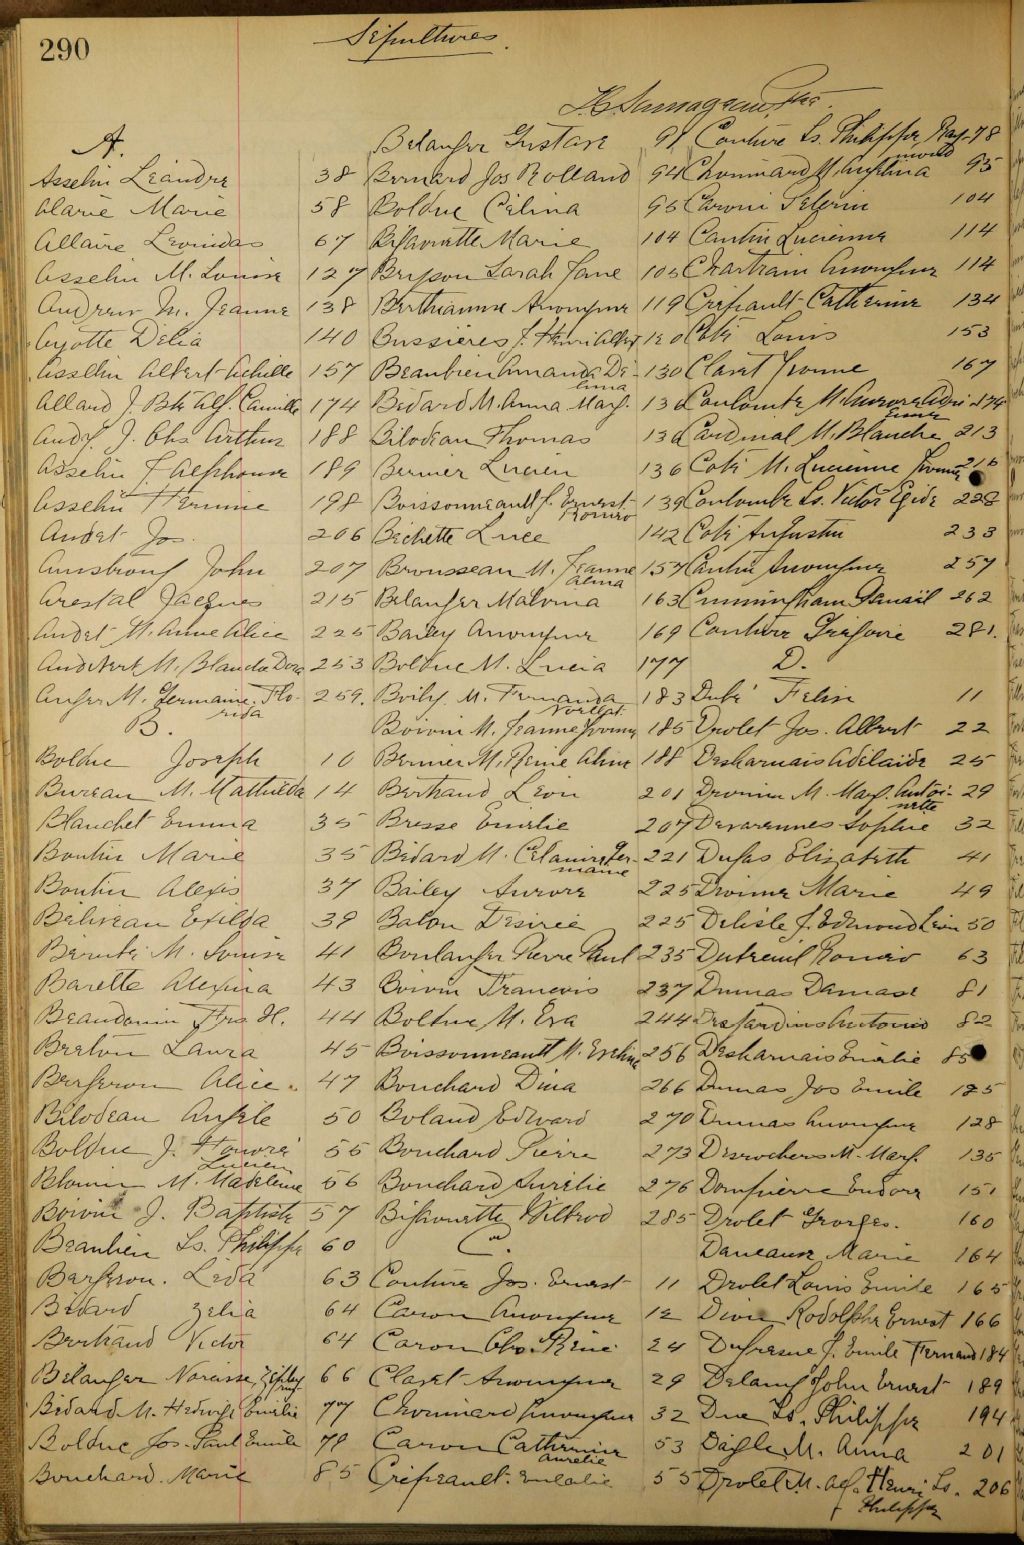 290
Sépultures.
A.
Asselin Léandre 38
Alarie Marie 58
Allaire Léonidas 67
Asselin M. Louise 127
Andrew M. Jeanne 138
Ayotte Délia 140
Asselin Albert Achille 157
Allard J. Bte Alf. Camille 174
Audy J. Chs Arthur 188
Asselin J. Alphonse 189
Asselin Hermine 198
Audet Jos. 206
Armstrong John 207
Arestal Jacques 215
Audet M. Anne Alice 225
M. Blanche Dora 253
Auger M. Germaine Flo- 259.
rida
B.
Bolduc Joseph 10
Bureau M. Mathilda 14
Blanchet Emma 35
Boutin Marie 35
Boutin Alexis 37
Béliveau Exilda 39
Bérubé M. Louise 41
Barette Alexina 43
Beaudouin Frs H. 44
Breton Laura 45
Bergeron Alice. 47
Bilodeau Angèle 50
Bolduc J. Honoré 55
Lucien
Blouin M. Madeleine 56
Boivin J. Baptiste 57
Beaulieu Ls. Philippe 60
Bergeron. Léda 63
Bédard Zélia 64
Bertrand Victor 64
Bélanger Narcisse Zéphy 66
rin
Bédard M. Hedwige Emélie 77
Bolduc Jos. Paul Emile 79
Bouchard Marie 85
Belanger Gustave 91
Bernard Jos Rolland 94
Bolduc Célina 95
Bissonnette Marie 104
Bryson Sarah Jane 105
Berthiaume Anonyme 119
Bussières J. Henri Albert 120
Beaubien Amanda Dé- 130
lima
Bédard M. Anna Marg. 132
Bilodeau Thomas 136
Bernier Lucien 136
Boissonneault J. Ernest 139
Roméo
Béchette Luce 142
Brousseau M. Jeanne 157
Alma
Belanger Malvina 163
Bailey Anonyme 169
Bolduc M. Lucia 177
Boily M. Fernanda 183
Boivin M. Jeanne Yvonne 185
Bernier M. Reine Aline 188
Bertrand Léon 201
Bresse Emélie 207
Bédard M. Célanire Ger- 221
maine
Bailey Aurore 225
Baton Désirée 225
Boulanger Pierre Paul 235
Boivin Francois 237
Bolduc M. Eva 244
Boissonneault M. Evelina 256
Bouchard Dina 266
Boland Edward 270
Bouchard Pierre 273
Bouchard Aurélie 276
Bissonnette Wilbrod 285
C.
Couture Jos. Ernest 11
Caron Anonyme 12
Caron Chs. René 24
Claret Anonyme 29
Chouinard Anonyme 32
Caron Catherine 53
Aurélie
Crépeault. Eulalie 55
Couture Ls. Philippe, Ray- 78
mond
Chouinard M. Angelina 95
Caroni Séverin 104
Cantin Lucienne 114
Chartrain Anonyme 114
Crépeault Catherine 134
Coté Louis 153
Claret Yvonne 167
Coulombe M. Aurore Adri- 174
enne
Cardinal M. Blanche 213
Coté M. Lucienne Yvonne 216
Coulombe Ls. Victor Egide 228
Coté Augustin 233
Cantin Anonyme 257
Cunningham Daniel 262
Couture Grégoire 281.
D.
Dubé Félix 11
Drolet Jos. Albert 22
Desharnais Adelaïde 25
Drouin M. Marg. Antoi- 29
nette
Devarennes Sophie 32
Dugas Elizabeth 41
Marie 49
Delisle J. Edmond Léon 50
Dubreuil Roméo 63
Dumas Damase 81
Desjardins Antonio 82
Desharnais Emélie 85
Dumas Jos Emile 125
Dumas Anonyme 128
Desrochers M. Marg. 135
Dompierre Eudore 151
Drolet Georges. 160
Daneause Marie 164
Drolet Louis Emile 165
Dion Rodolphe Ernest 166
Dufresne J. Emile Fernand 184
Delany John Ernest 189
Ls. Philippe 194
Daigle M. Anna 201
Drolet M. Henri Ls. 206
Philippe